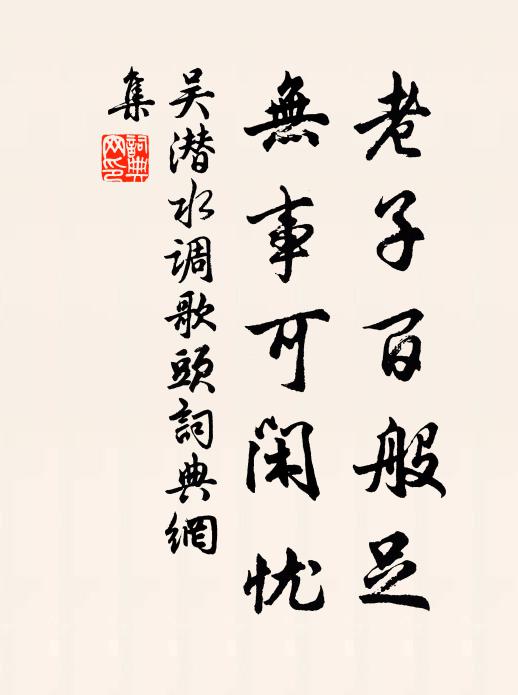 老子百般足
無事可闲忧
吴潜水调歌頭詞典網
集
詞典網印